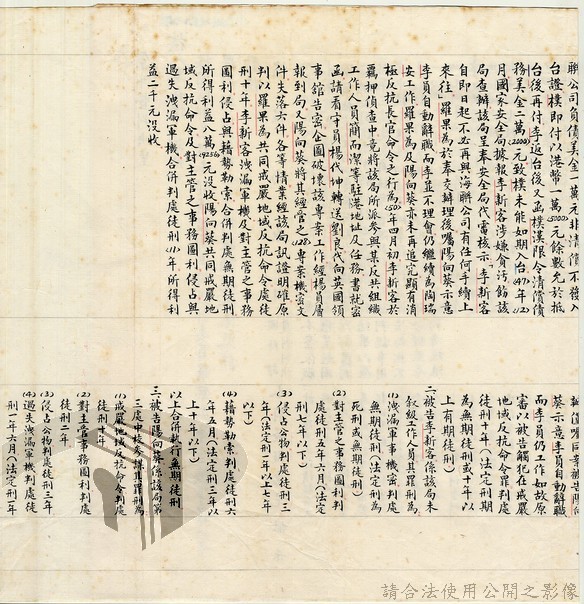 聯公司负債美金一萬元非清償不獲入
台證樸即付以港幣一萬(5000)元餘數元於抵
台後再付李返台後又函樸漢限令清償債
務美金二萬(2000)元致樸未能如期入台(47)年(12)
月國家安全局據報李新客涉嫌貪污飭該
局查辦該局呈奉安全局代電核示「李新客
自即日起不必再與海聯公司有任何手續上
來往」羅果為於奉交辦理後囑陽向葵示意
李員自動辭職而李並不理會仍繼續為陶瑞
安工作羅果為及陽向葵亦未再追究顯有消
極反抗長官命令之行為(50)年四月初李新客於
羈押偵查中竟將該局所派參與某反共組織
工作人員簡而潔等駐港地址及任務書就密
函請看守員楊代坤轉送劉良代向英國領
事舘告密企圖破壞該專案工作經楊員層
報到局又陽向葵將其經管之(128)專案機密文
件失落六件各等情業經該局訊證明確原
判以羅果為共同戒嚴地域反抗命令處徒
刑十年李新客洩漏軍機及對主管之事務
圖利侵占與藉勢勒索合併判處無期徒刑
所得利益八萬(4256)元没收陽向葵共同戒嚴地
域反抗命令及對主管之事務圖利侵占與
過失洩漏軍機合併判處徒刑(11)年所得利
益二千元没收
葵示意李員自動辭職
而李員仍工作如故原
審以被告觸犯在戒嚴
地域反抗命令罪判處
徒刑十年(法定刑期
為無期徒刑或十年以
上有期徒刑)
二被告李新客係該局未
敘級工作人員其罪刑為
(1)洩漏軍事機密判處
無期徒刑(法定刑為
死刑或無期徒刑)
(2)對主管之事務圖利判
處徒刑五年六月(法定
刑七年以下)
(3)侵占公物判處徒刑三
年(法定刑五年以上七年
以下)
(4)藉勢勒索判處徒刑六
年五月(法定刑三年以
上十年以下)
以上合併執行無期徒刑
三被告陽向葵係該局第
三處中校參謀其罪刑為
(1)戒嚴地域反抗命令判處
徒刑十年
(2)對主管事務圖利判處
徒刑二年
(3)侵占公物判處徒刑三年
(4)過失洩漏軍機判處徒
刑一年六月(法定刑三年
請合法使用公開之影像